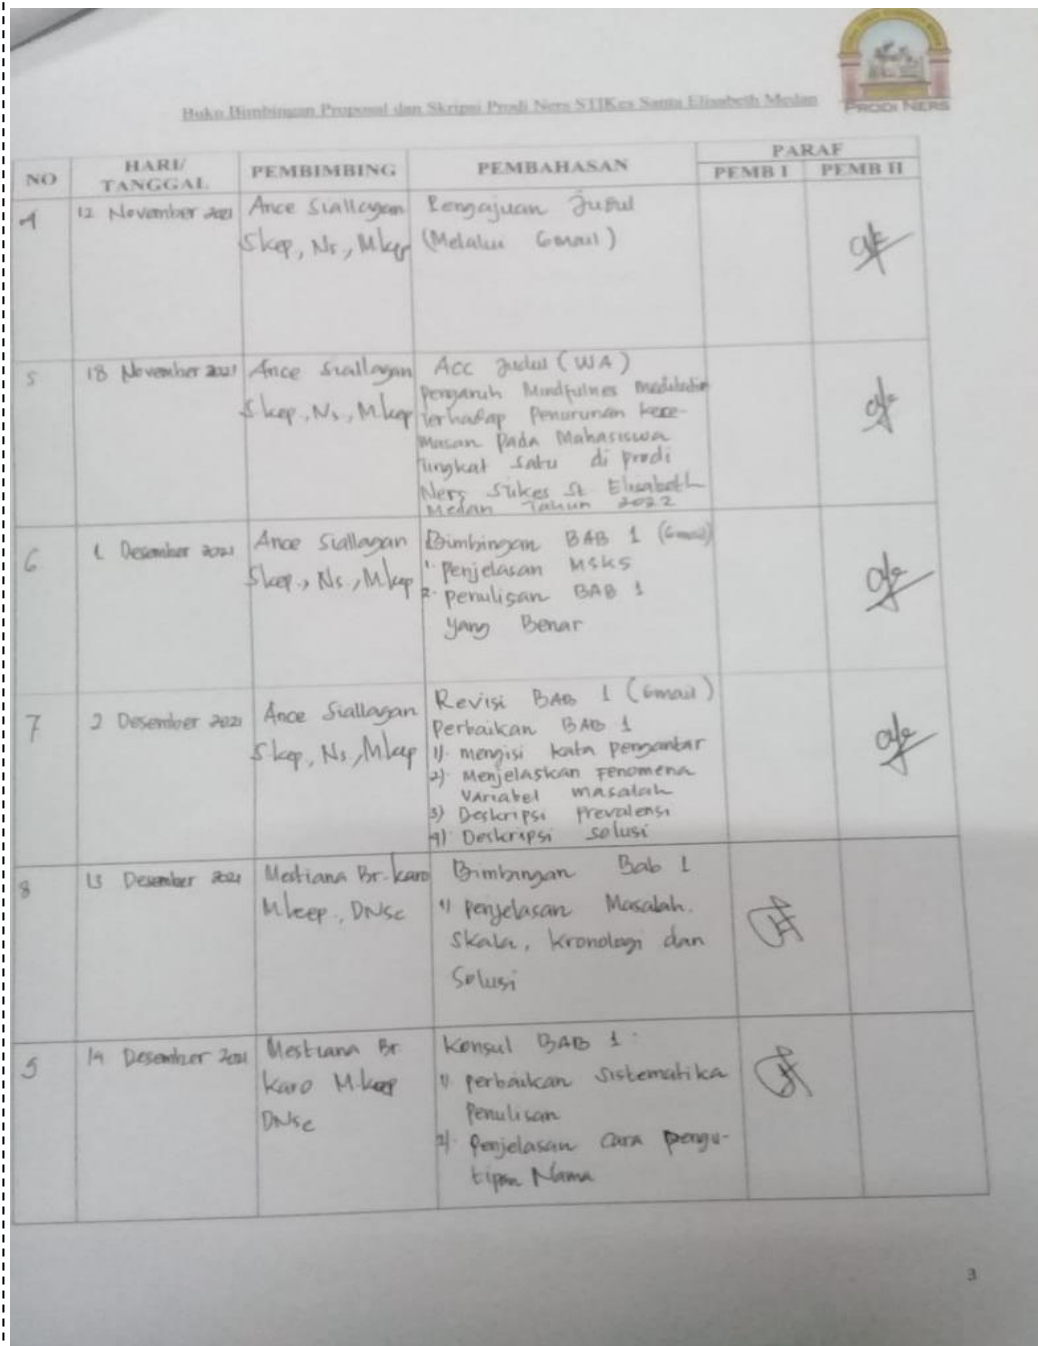 Buku Bimbingan Proposal dan Skripsi Prodi Ners STIKes Santa Elisabeth Medan
PRODI NERS
NO
HARI/
TANGGAL
PEMBIMBING
PEMBAHASAN
PARAF
PEMB I
PEMB II
4
12 November 2021
Ance Siallagan
Skep, Ns, Mkep
Pengajuan Judul
(Melalui Gmail)
5
18 November 2021
Ance Siallagan
Skep, Ns, Mkep
Acc Judul (WA)
Pengaruh Mindfulnes
terhadap Penurunan kece-
masan Pada Mahasiswa
tingkat satu di prodi
Ners Stikes St Elisabeth
Medan Tahun 2022
6
1 Desember 2021
Ance Siallagan
Skep., Ns., Mkep
Bimbingan BAB 1 (Gmail)
1. Penjelasan MSKS
2. penulisan BAB 1
yang Benar
7
2 Desember 2021
Ance Siallagan
Skep, Ns, Mkep
Revisi BAB 1 (Gmail)
Perbaikan BAB 1
1) mengisi kata pengantar
2) Menjelaskan Fenomena
Variabel masalah
3) Deskripsi Prevalensi
4) Deskripsi solusi
8
13 Desember 2021
Mestiana Br. Karo
Mkep., DNSc
Bimbingan Bab 1
1) Penjelasan Masalah.
Skala, Kronologi dan
Solusi
14 Desember 2021
Mestiana Br.
Karo M.kep
DNSc
Konsul BAB 1 :
1) perbaikan sistematika
Penulisan
2) Penjelasan cara pengu-
tipan Nama
3